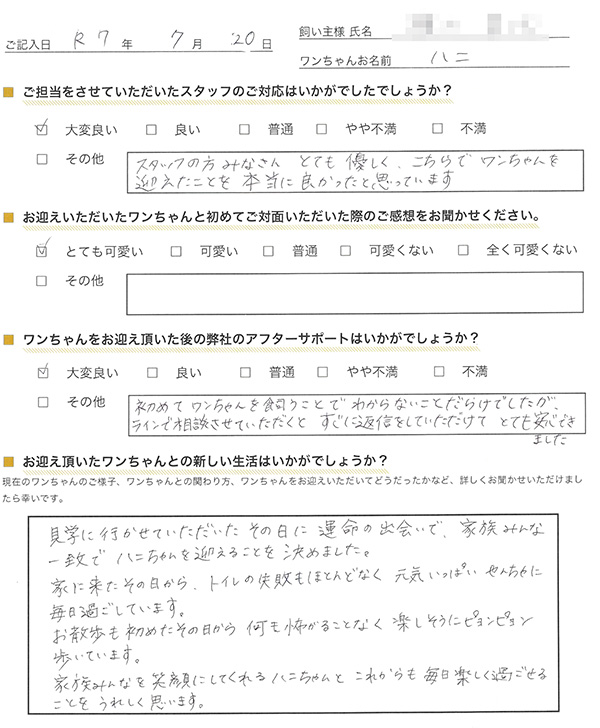 ご記入日 R 7 年 7 月 20 日
飼い主様 氏名
ワンちゃんお名前 ハニ
■ ご担当をさせていただいたスタッフのご対応はいかがでしたでしょうか？
☑ 大変良い □ 良い □ 普通 □ やや不満 □ 不満
□ その他 スタッフの方 みなさん とても 優しく、こちらで ワンちゃんを
迎えたことを 本当に 良かったと思っています
■ お迎えいただいたワンちゃんと初めてご対面いただいた際のご感想をお聞かせください。
☑ とても可愛い □ 可愛い □ 普通 □ 可愛くない □ 全く可愛くない
□ その他
■ ワンちゃんをお迎え頂いた後の弊社のアフターサポートはいかがでしょうか？
☑ 大変良い □ 良い □ 普通 □ やや不満 □ 不満
□ その他 初めて ワンちゃんを飼うことで わからないことだらけでしたが、
ラインで相談させていただくと すぐに返信をしていただけて とても安心でき
ました
■ お迎え頂いたワンちゃんとの新しい生活はいかがでしょうか？
現在のワンちゃんのご様子、ワンちゃんとの関わり方、ワンちゃんをお迎えいただいてどうだったかなど、詳しくお聞かせいただけまし
たら幸いです。
見学に行かせていただいた その日に 運命の出会いで、家族みんな
一致で ハニちゃんを迎えることを 決めました。
家に来たその日から、トイレの失敗もほとんどなく 元気いっぱい やんちゃに
毎日過ごしています。
お散歩も初めたその日から 何も怖がることなく 楽しそうにピョンピョン
歩いています。
家族みんなを笑顔にしてくれるハニちゃんと これからも 毎日楽しく過ごせる
ことを うれしく思います。